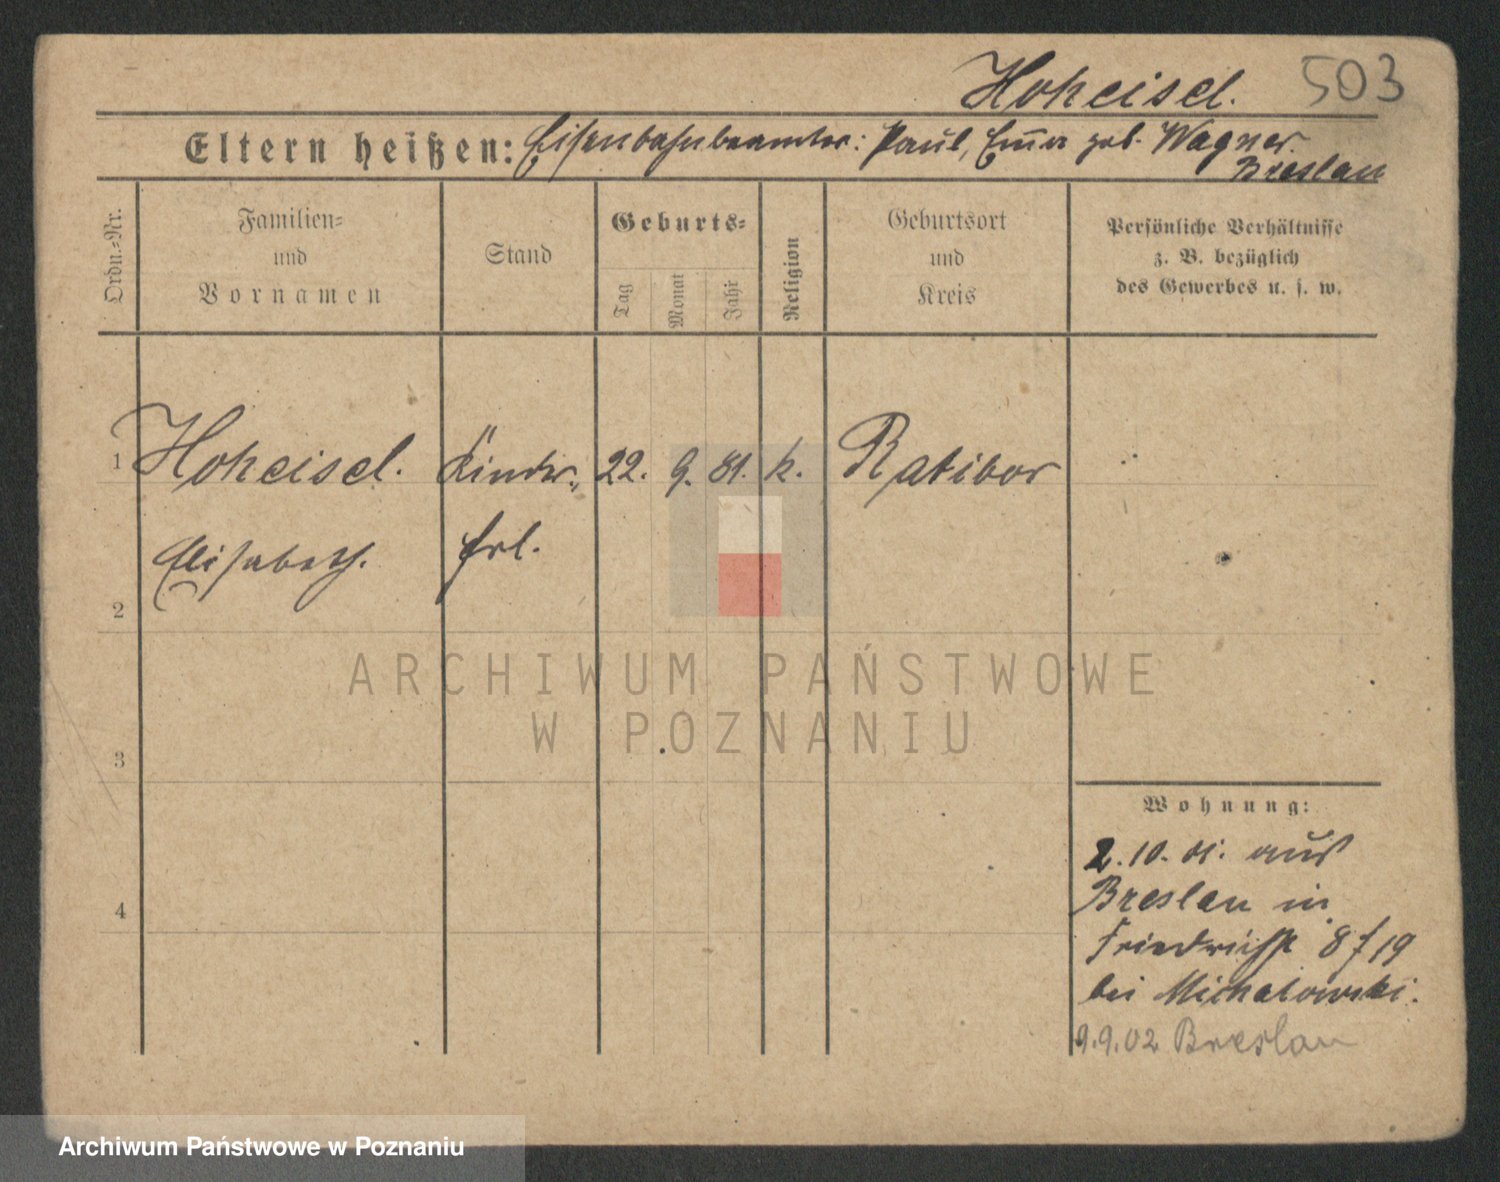 Hoheisel. 503
Eltern heißen: Eisenbahnbeamter: Paul, Emma geb. Wagner.
Breslau
Ordn.-Nr.
Familien-
und
Vornamen
Stand
Geburts-
Tag
Monat
Jahr
Religion
Geburtsort
und
Kreis
Persönliche Verhältnisse
z. B. bezüglich
des Gewerbes u. s. w.
1 Hoheisel. Kinder- 22. 9. 81. k. Ratibor
Elisabeth. frl.
2
3
4
ARCHIWUM PAŃSTWOWE
W POZNANIU
Wohnung:
2.10.01. aus
Breslau in
Friedrichstr 8 f 19
bei Michalowski.
9.9.02 Breslau
Archiwum Państwowe w Poznaniu